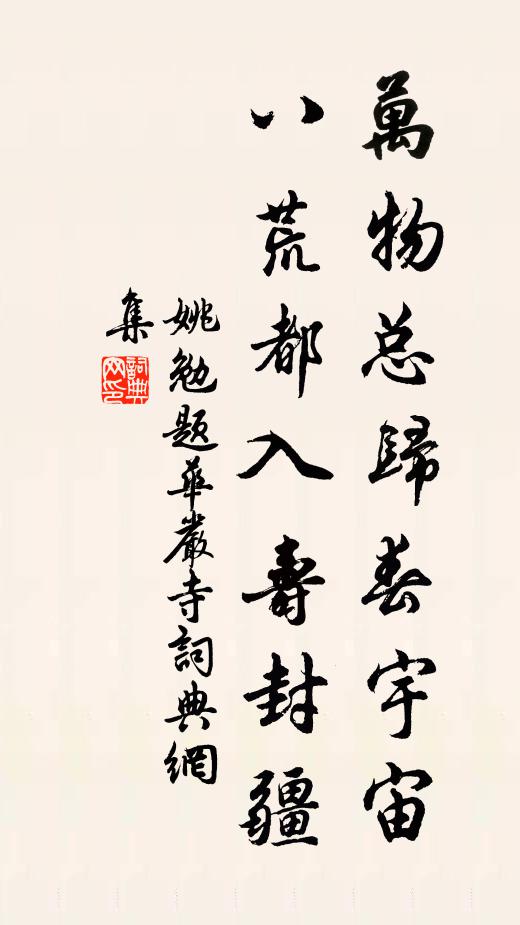 萬物总歸春宇宙
八荒都入壽封疆
姚勉題華嚴寺詞典網
集
詞典
网印